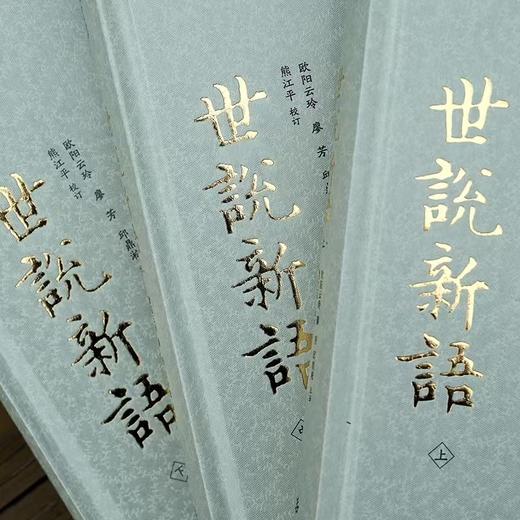 世說新語
上
欧阳云玲 廖芳 邱
熊江平 校订
世說新語
欧阳云玲 廖芳 邱鼎
熊江平 校订
世說新語
下